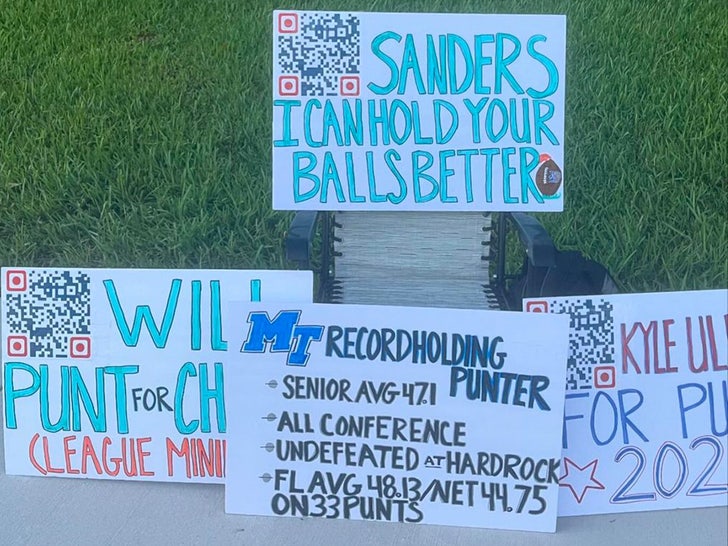 SANDERS
I CAN HOLD YOUR
BALLS BETTER
WIL
PUNT FOR CH
(LEAGUE MINI
MT RECORDHOLDING
PUNTER
- SENIOR AVG 47.1
- ALL CONFERENCE
- UNDEFEATED AT HARDROCK
- FL AVG 48.13/NET 44.75
ON 33 PUNTS
KYLE UL
FOR PU
202